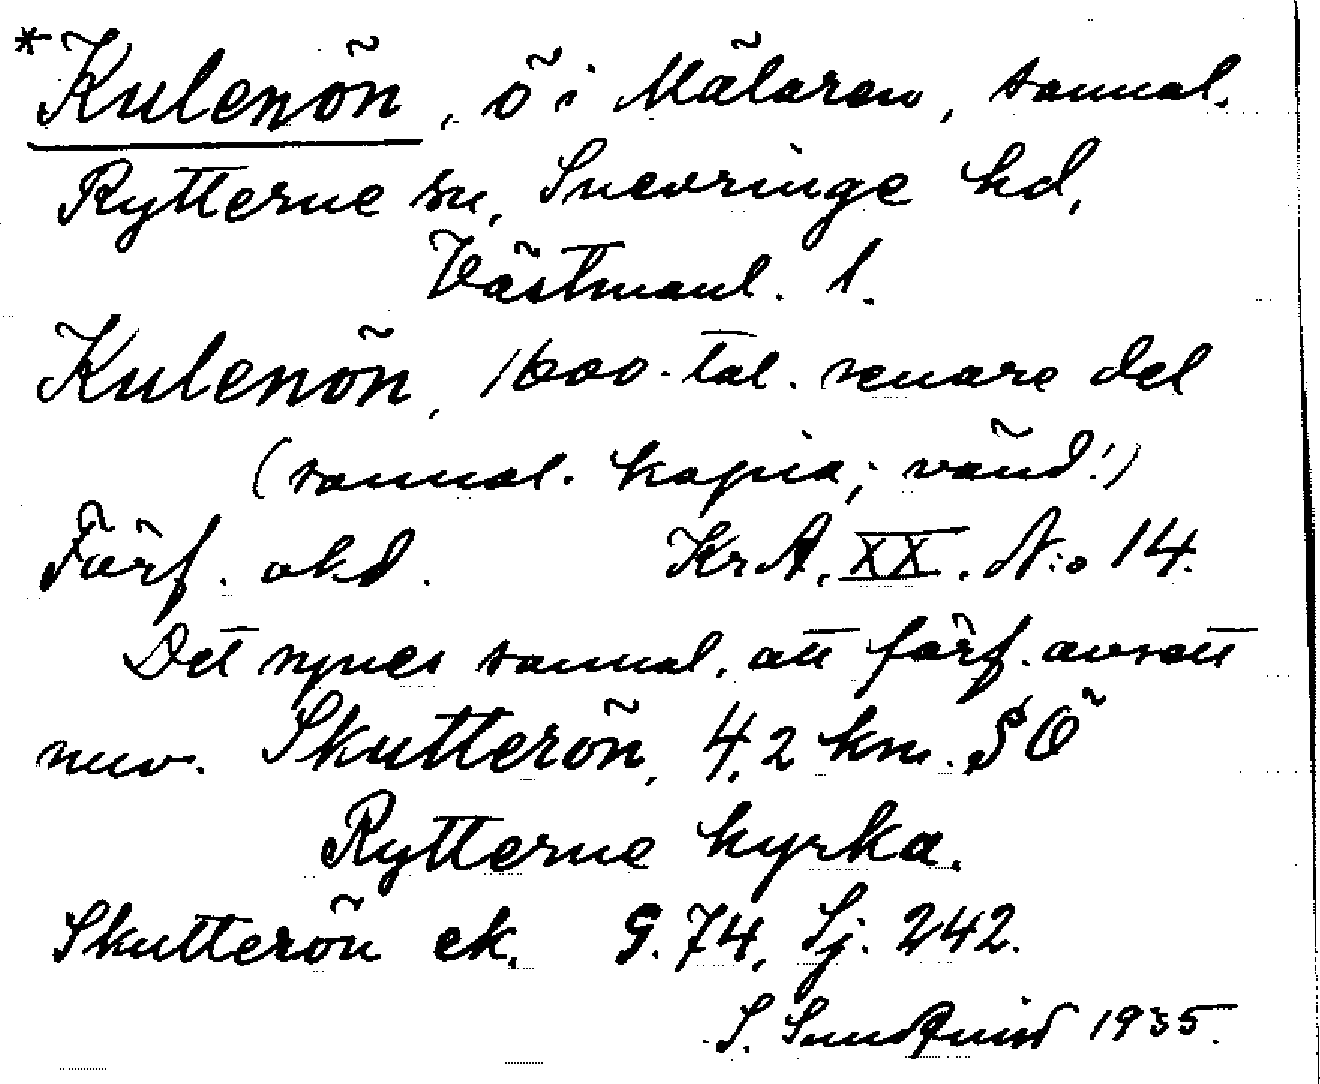 *Kulenön, ö i Mälaren, sannol.
Rytterne sn, Snevringe hd,
Västmanl. l.
Kulenön, 1600-tal. senare del
(sannol. kopia; vänd!)
Förf. okd. KrA, XX. N:o 14.
Det synes sannol. att förf. avsett
nuv. Skutterön, 4,2 km. SÖ
Rytterne kyrka.
Skutterön ek. G. 74, Sj. 242.
S. Sundqvist 1935.